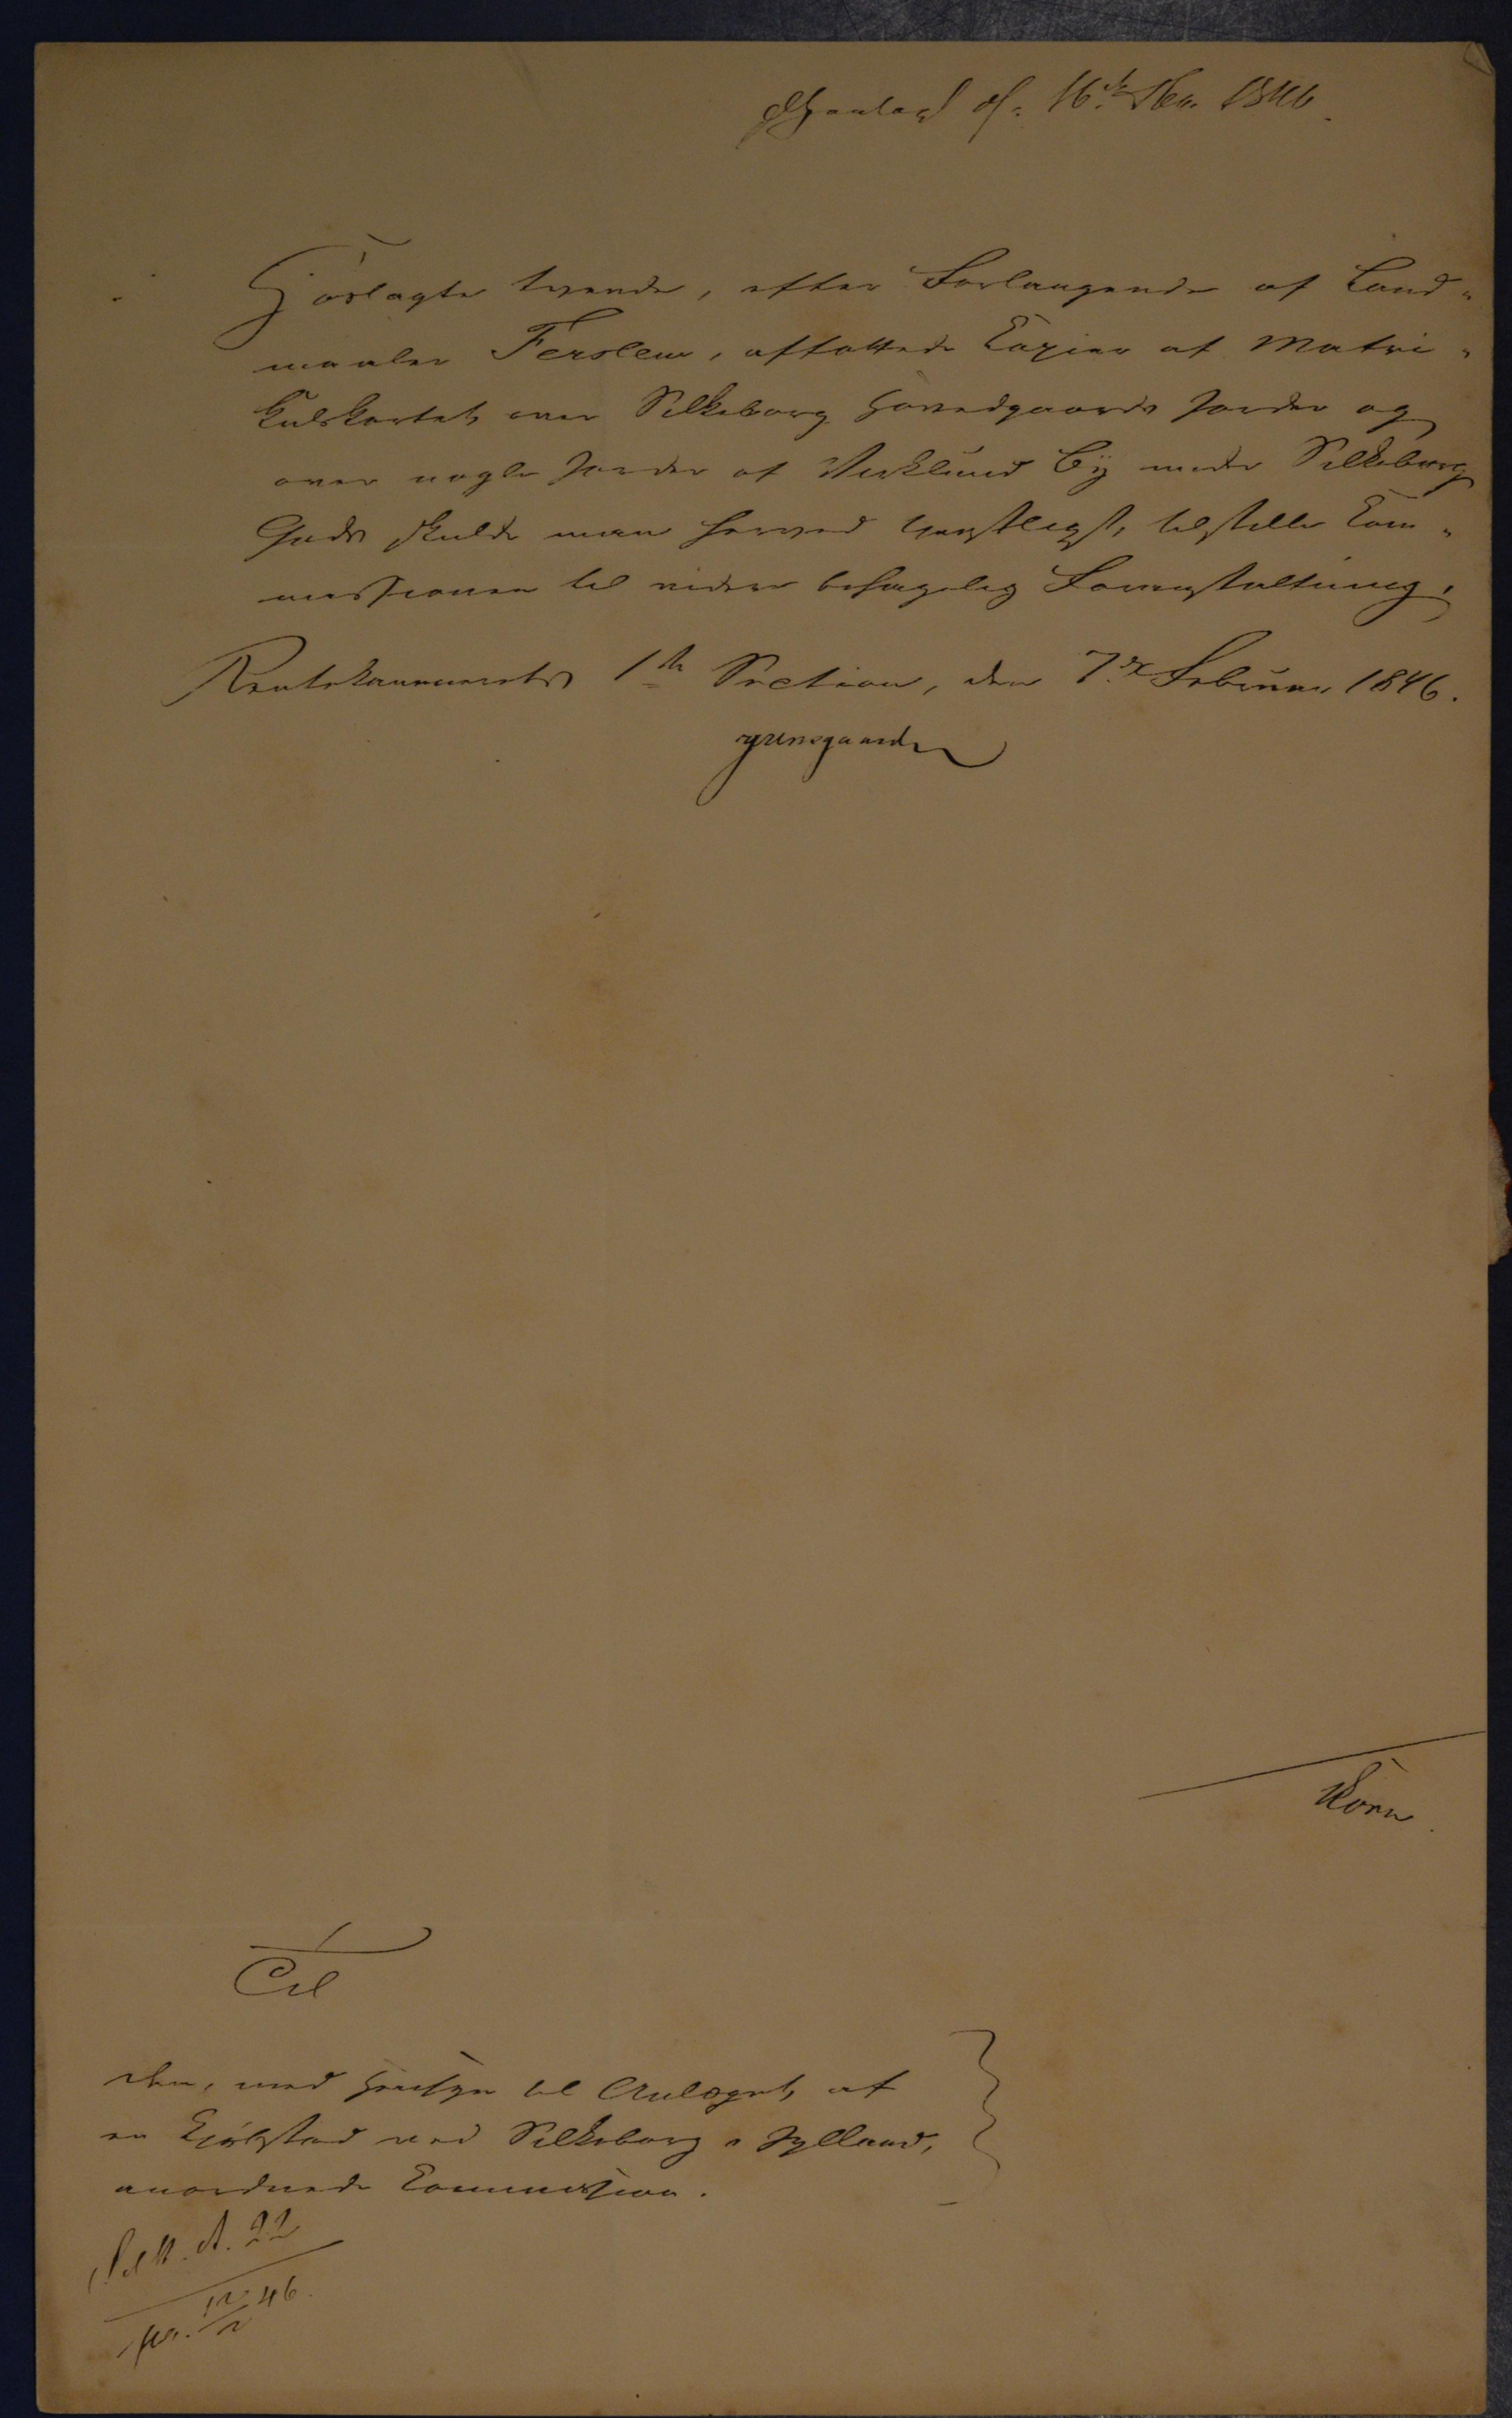 d. 16de 1846.
Hoslagte tvende, efter Forlangende af Land-
maaler Ferslew, affattede Copier af Matri-
kulskortet over Silkeborg Hovedgaards Jorder og
over nogle Jorder af Virklund By under Silkeborg
Gods skulde man herved tjenstligst tilstille Com-
missionen til videre behagelig Foranstaltning.
Rentekammerets 1ste Section, den 7de Februar 1846.
Korn.
Til
den, med Hensyn til Anlæget af
en Kjøbstad ved Silkeborg i Jylland,
anordnede Commission.
A. 22
12/2 46.